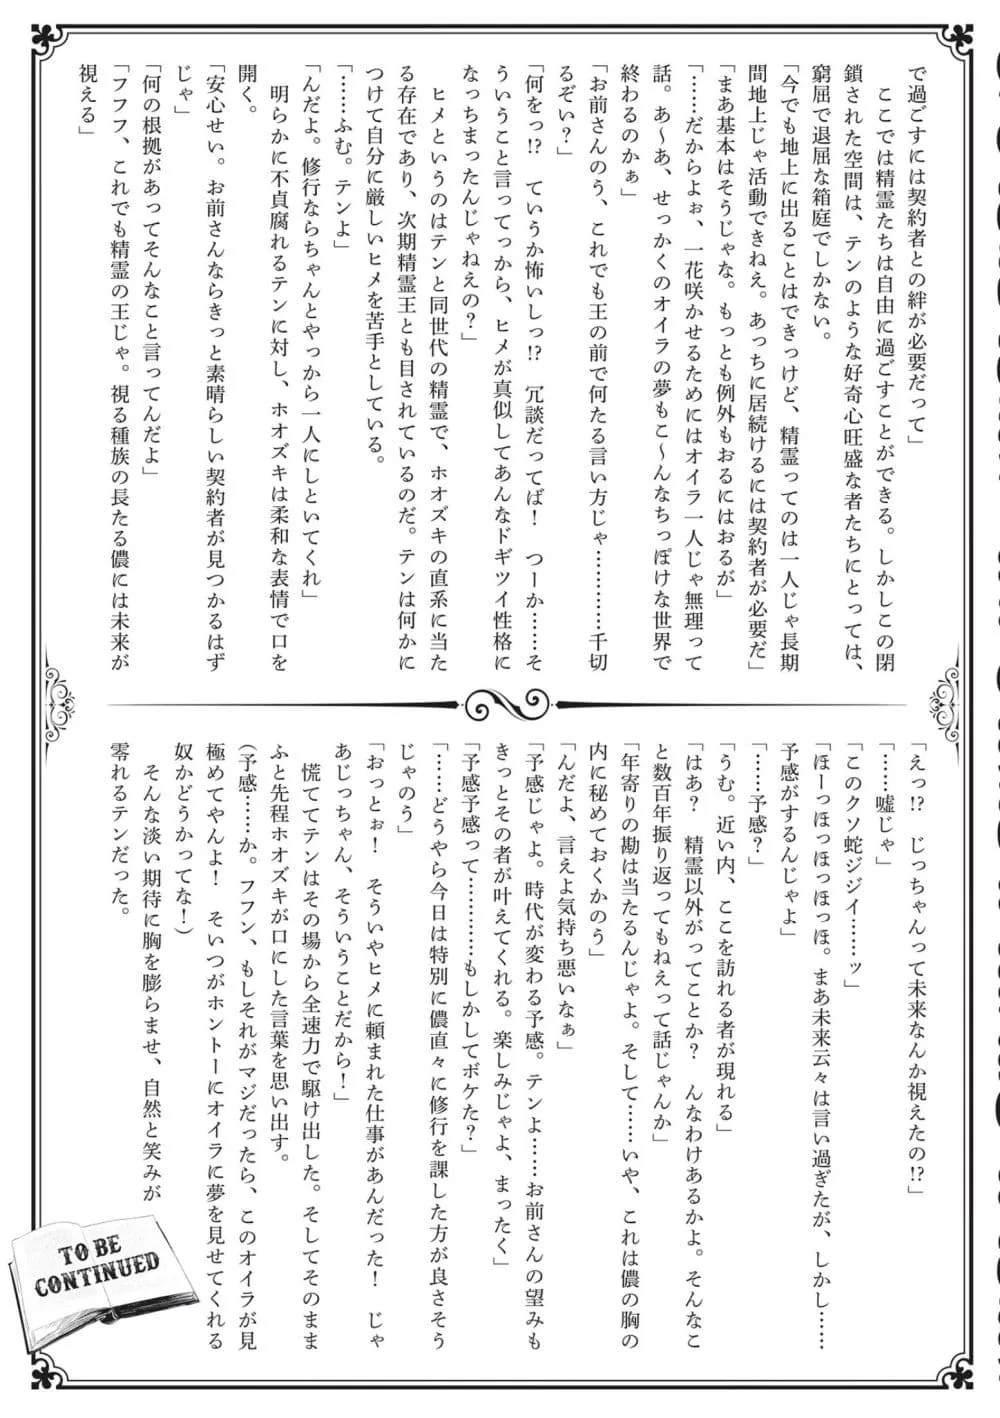 で過ごすには契約者との絆が必要だって」
　ここでは精霊たちは自由に過ごすことができる。しかしこの閉
鎖された空間は、テンのような好奇心旺盛な者たちにとっては、
窮屈で退屈な箱庭でしかない。
「今でも地上に出ることはできっけど、精霊ってのは一人じゃ長期
間地上じゃ活動できねえ。あっちに居続けるには契約者が必要だ」
「まあ基本はそうじゃな。もっとも例外もおるにはおるが」
「……だからよぉ、一花咲かせるためにはオイラ一人じゃ無理って
話。あ〜あ、せっかくのオイラの夢もこ〜んなちっぽけな世界で
終わるのかぁ」
「お前さんのう、これでも王の前で何たる言い方じゃ…………千切
るぞい？」
「何をっ!?　ていうか怖いしっ!?　冗談だってば！　つーか……そ
ういうこと言ってっから、ヒメが真似してあんなドギツイ性格に
なっちまったんじゃねえの？」
　ヒメというのはテンと同世代の精霊で、ホオズキの直系に当た
る存在であり、次期精霊王とも目されているのだ。テンは何かに
つけて自分に厳しいヒメを苦手としている。
「……ふむ。テンよ」
「んだよ。修行ならちゃんとやっから一人にしといてくれ」
　明らかに不貞腐れるテンに対し、ホオズキは柔和な表情で口を
開く。
「安心せい。お前さんならきっと素晴らしい契約者が見つかるはず
じゃ」
「何の根拠があってそんなこと言ってんだよ」
「フフフ、これでも精霊の王じゃ。視る種族の長たる儂には未来が
視える」
「えっ!?　じっちゃんって未来なんか視えたの!?」
「……嘘じゃ」
「このクソ蛇ジジイ……ッ」
「ほーっほっほっほっほ。まあ未来云々は言い過ぎたが、しかし……
予感がするんじゃよ」
「……予感？」
「うむ。近い内、ここを訪れる者が現れる」
「はあ？　精霊以外がってことか？　んなわけあるかよ。そんなこ
と数百年振り返ってもねえって話じゃんか」
「年寄りの勘は当たるんじゃよ。そして……いや、これは儂の胸の
内に秘めておくかのう」
「んだよ、言えよ気持ち悪いなぁ」
「予感じゃよ。時代が変わる予感。テンよ……お前さんの望みも
きっとその者が叶えてくれる。楽しみじゃよ、まったく」
「予感予感って…………もしかしてボケた？」
「……どうやら今日は特別に儂直々に修行を課した方が良さそう
じゃのう」
「おっとぉ！　そういやヒメに頼まれた仕事があんだった！　じゃ
あじっちゃん、そういうことだから！」
　慌ててテンはその場から全速力で駆け出した。そしてそのまま
ふと先程ホオズキが口にした言葉を思い出す。
（予感……か。フフン、もしそれがマジだったら、このオイラが見
極めてやんよ！　そいつがホントーにオイラに夢を見せてくれる
奴かどうかってな！）
　そんな淡い期待に胸を膨らませ、自然と笑みが
零れるテンだった。
TO BE
CONTINUED